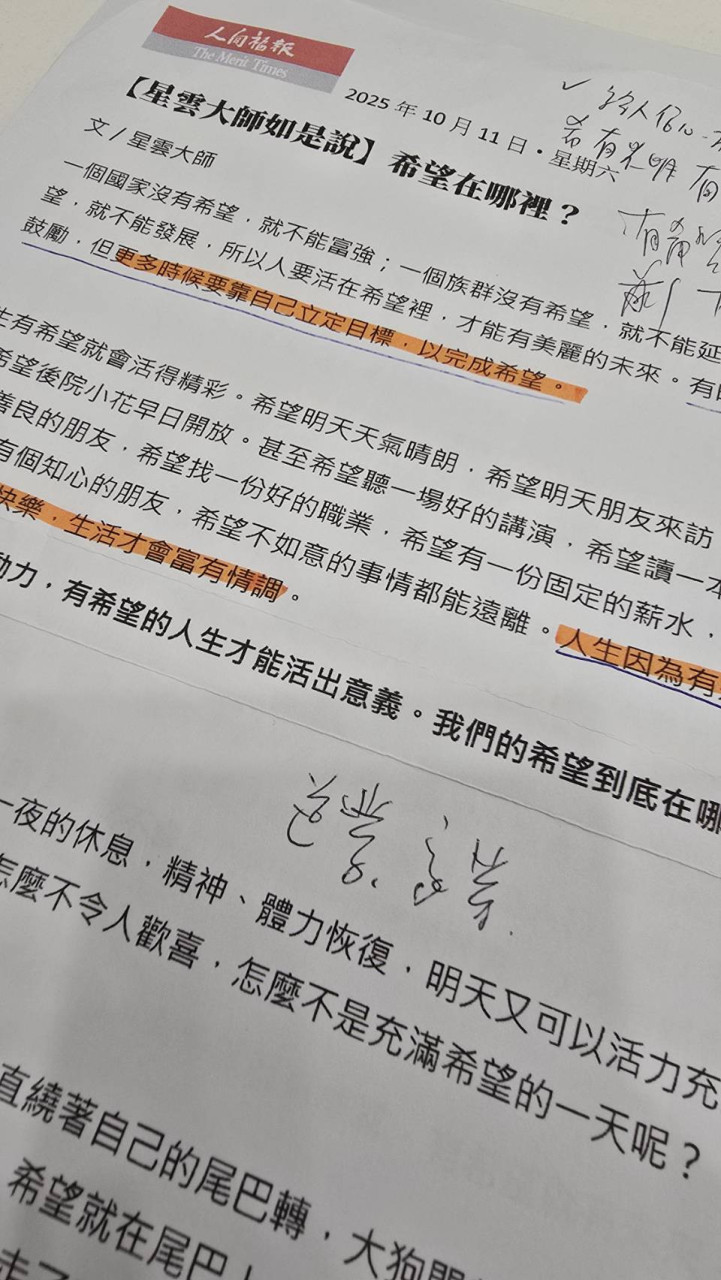 人间福報
The Merit Times
2025 年 10 月 11 日・星期六
【星雲大師如是說】希望在哪裡？
文／星雲大師
一個國家沒有希望，就不能富強；一個族群沒有希望，就不能延
望，就不能發展，所以人要活在希望裡，才能有美麗的未來。有
鼓勵，但更多時候要靠自己立定目標，以完成希望。
生有希望就會活得精彩。希望明天天氣晴朗，希望明天朋友來訪
希望後院小花早日開放。甚至希望聽一場好的講演，希望讀一本
善良的朋友，希望找一份好的職業，希望有一份固定的薪水，
有個知心的朋友，希望不如意的事情都能遠離。人生因為有
快樂，生活才會富有情調。
動力，有希望的人生才能活出意義。我們的希望到底在哪
一夜的休息，精神、體力恢復，明天又可以活力充
怎麼不令人歡喜，怎麼不是充滿希望的一天呢？
直繞著自己的尾巴轉，大狗
希望就在尾巴上